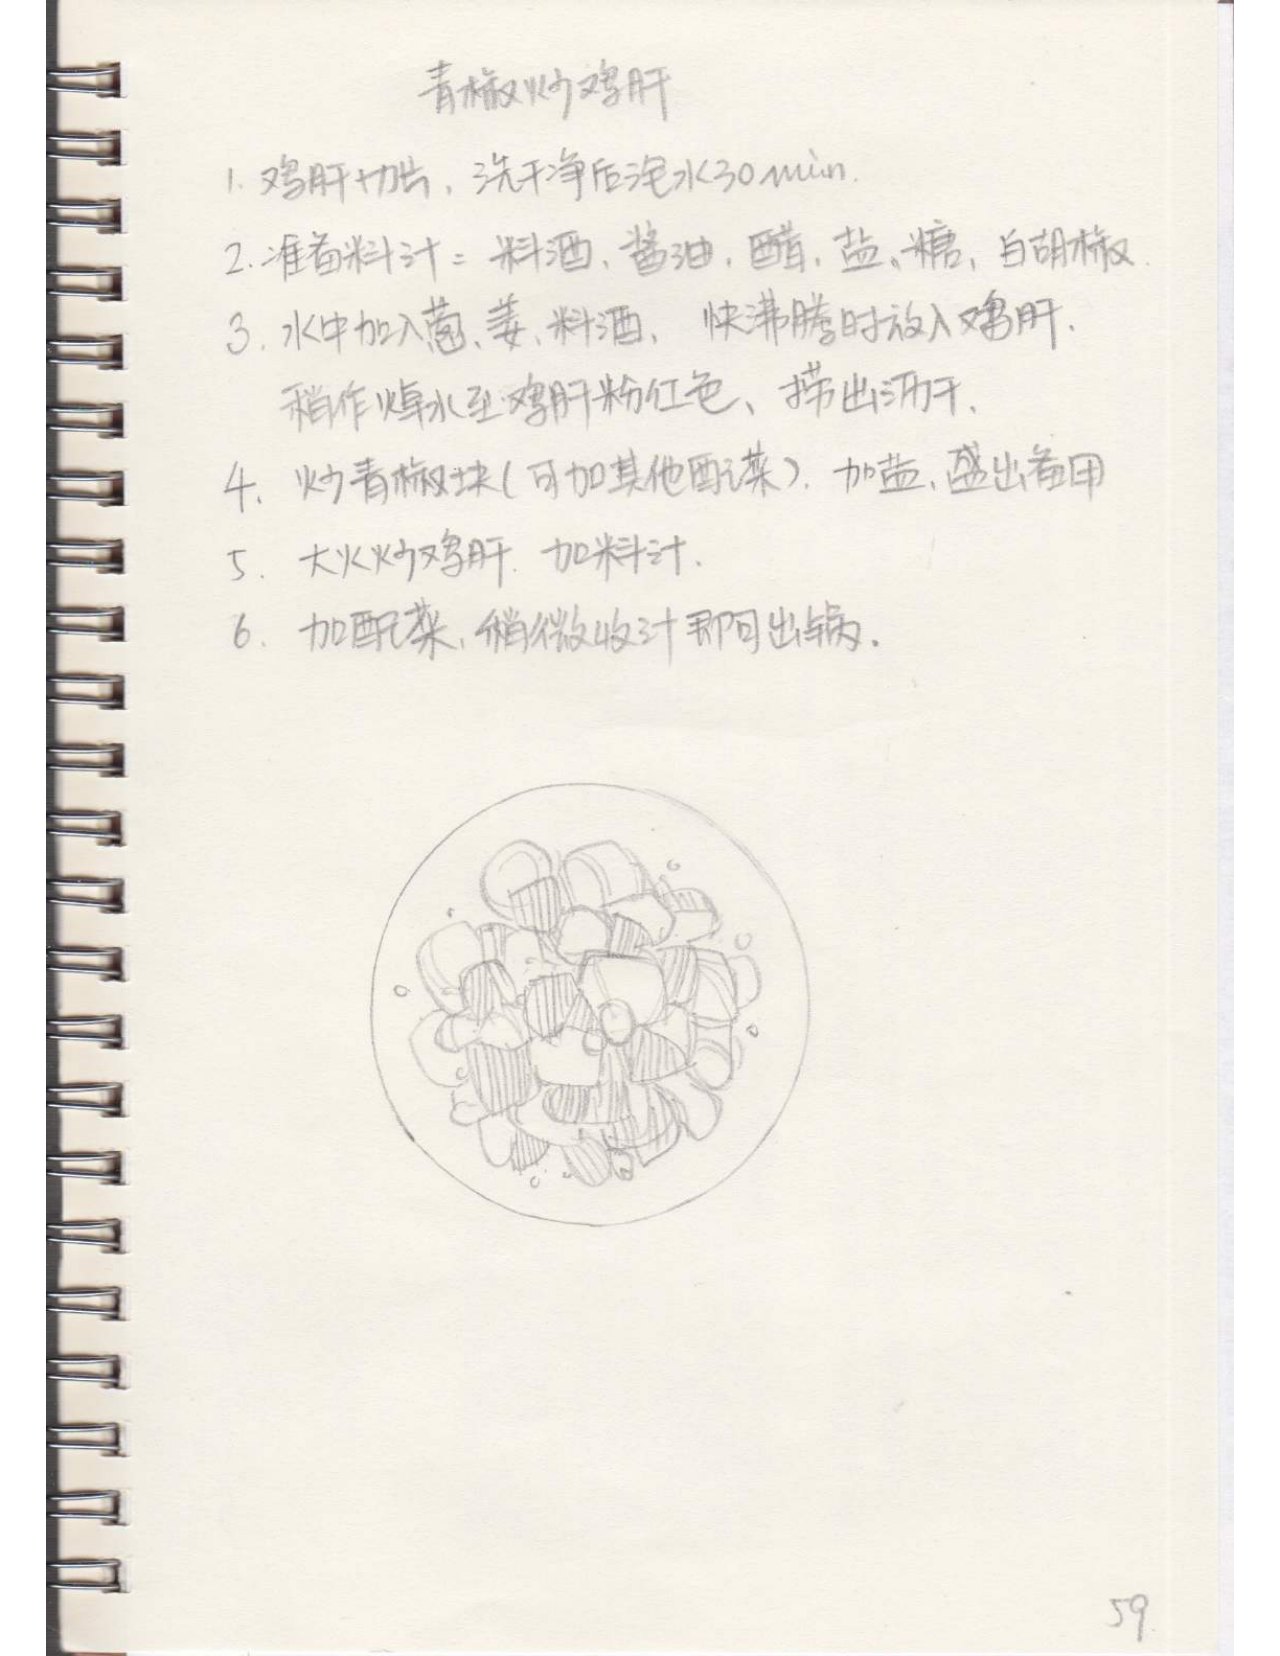 青椒炒鸡肝
1. 鸡肝切片，洗干净后泡水30min.
2. 准备料汁：料酒、酱油、醋、盐、糖、白胡椒.
3. 水中加入葱、姜、料酒，快沸腾时放入鸡肝.
稍作焯水至鸡肝粉红色、捞出沥干.
4. 炒青椒块(可加其他配菜). 加盐、盛出备用
5. 大火炒鸡肝. 加料汁.
6. 加配菜，稍微收汁即可出锅.
59